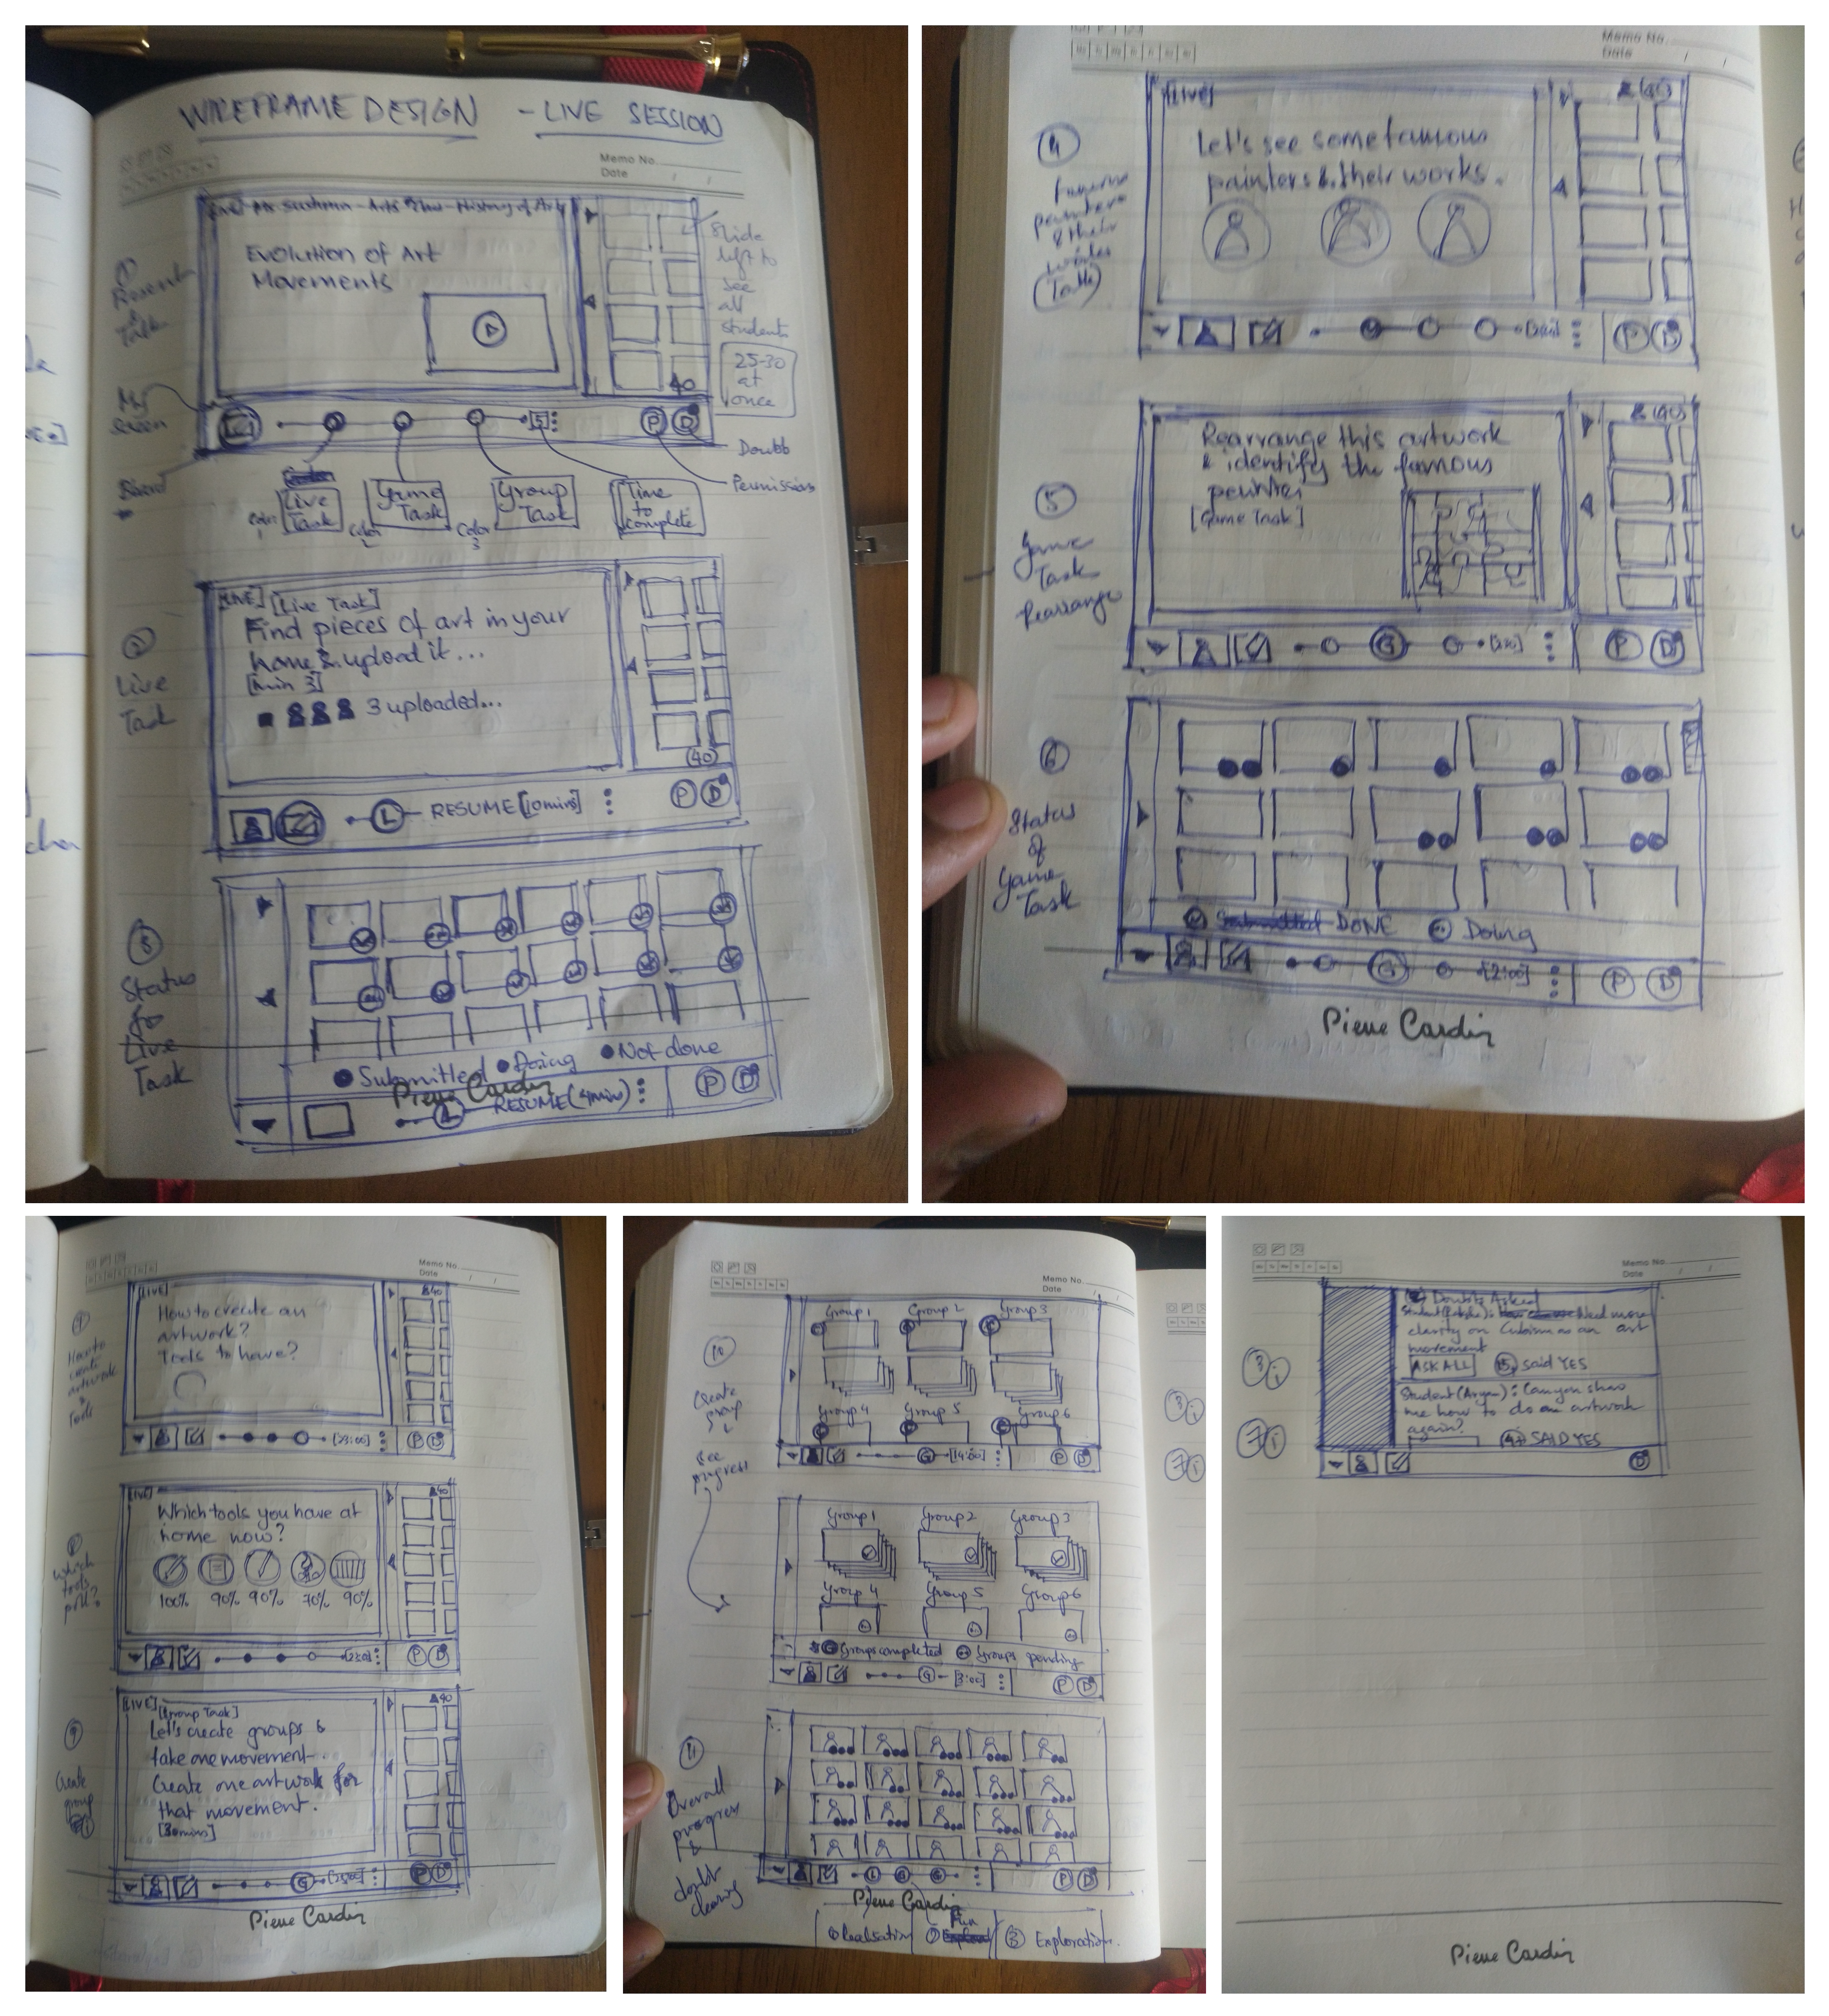 WIREFRAME DESIGN - LIVE SESSION
Memo No.
Date / /
Evolution of Art
Movements
Slide
left to
see
all
students
25-30
at
once
40
My
Screen
Board
[5]
P D
Doubts
Permissions
Color 1
Live
Task
Color 2
Game
Task
Color 3
Group
Task
Time
to
complete
2
Live
Task
[LIVE] [Live Task]
Find pieces of art in your
home & upload it...
[min 3]
3 uploaded...
40
L RESUME [10mins]
P D
3
Status
for
Live
Task
Submitted Doing Not done
L RESUME (4min)
P D
Pierre Cardin
Memo No.
Date / /
4
famous
painters
& their
works
(Talk)
[LIVE]
(40)
Let's see some famous
painters & their works.
P D
5
Game
Task
Rearrange
(40)
Rearrange this artwork
& identify the famous
painter
[Game Task]
G
P D
6
Status
of
Game
Task
DONE Doing
G [2:00]
P D
Pierre Cardin
Memo No.
Date / /
[LIVE]
40
How to create an
artwork?
Tools to have?
[23:00]
P D
which
tools
poll?
[LIVE]
40
Which tools you have at
home now?
100% 90% 90% 70% 90%
P D
9
Create
group
[LIVE] [Group Task]
40
Let's create groups &
take one movement.
Create one artwork for
that movement.
[30mins]
G
P D
Pierre Cardin
Memo No.
Date / /
10
Create
group
&
see
progress
Group 1 Group 2 Group 3
Group 4 Group 5 Group 6
G [14:00]
P D
Group 1 Group 2 Group 3
Group 4 Group 5 Group 6
Groups completed Groups pending
G [3:00]
P D
11
Overall
progress
&
doubt
clearing
L G G
P D
Pierre Cardin
Realisation Fun 3 Exploration.
3 i
7 i
Memo No.
Date / /
3 i
7 i
Doubts Asked
Need more
clarity on Cubism as an art
movement
ASK ALL 15 said YES
Student (Aryan): Can you show
me how to do an artwork
again?
SAID YES
D
Pierre Cardin